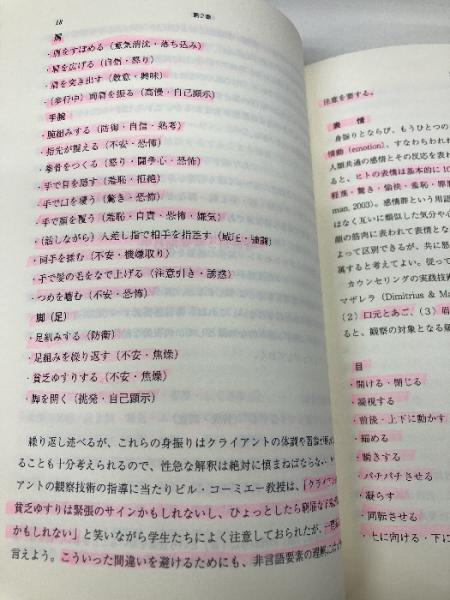 18
第2章
肩
・肩をすぼめる（意気消沈・落ち込み）
・肩を広げる（自信・怒り）
・肩を突き出す（敵意・興味）
・（歩行中）両肩を振る（高慢・自己顕示）
手腕
・腕組みする（防御・自信・熟考）
・指先が震える（不安・恐怖）
・拳骨をつくる（怒り・闘争心・恐怖）
・手で目を隠す（羞恥・拒絶）
・手で口を覆う（驚き・恐怖）
・手で顔を覆う（羞恥・自責・恐怖・嫌気）
・（話しながら）人差し指で相手を指差す（威圧・強調）
・両手を揉む（不安・機嫌取り）
・手で髪の毛をなで上げる（注意引き・誘惑）
・つめを嚙む（不安・恐怖）
脚（足）
・足組みする（防衛）
・足組みを繰り返す（不安・焦燥）
・貧乏ゆすりする（不安・焦燥）
・脚を開く（挑発・自己顕示）
繰り返し述べるが、これらの身振りはクライアントの体調や習慣が
ることも十分考えられるので、性急な解釈は絶対に慎まねばならない
アントの観察技術の指導に当たりビル・コーミエー教授は、「クライアン
貧乏ゆすりは緊張のサインかもしれないし、ひょっとしたら
かもしれない」と笑いながら学生たちによく注意しておられたが、
言えよう。こういった間違いを避けるためにも、非言語要素の理解に
注意を要する。
表情
身振りとならび、もうひとつの
情動（emotion）、すなわちわれ
人類共通の感情とその反応を表わ
ると、ヒトの表情は基本的に10
軽蔑・驚き・愉快・羞恥・罪悪
man, 2003）。感情群という用語
はなく互いに類似した気分や心
顔の筋肉に表われて表情とな
よって区別できるが、共に怒
属すると考えてよい。従って
カウンセリングの実践技術
マザレラ（Dimitrius & Ma
（2）口元とあご、（3）眉
ると、観察の対象となる疑
目
・開ける・閉じる
・凝視する
・前後・上下に動かす
・細める
・瞬きする
・パチパチさせる
・凝らす
・回転させる
・上に向ける・下に